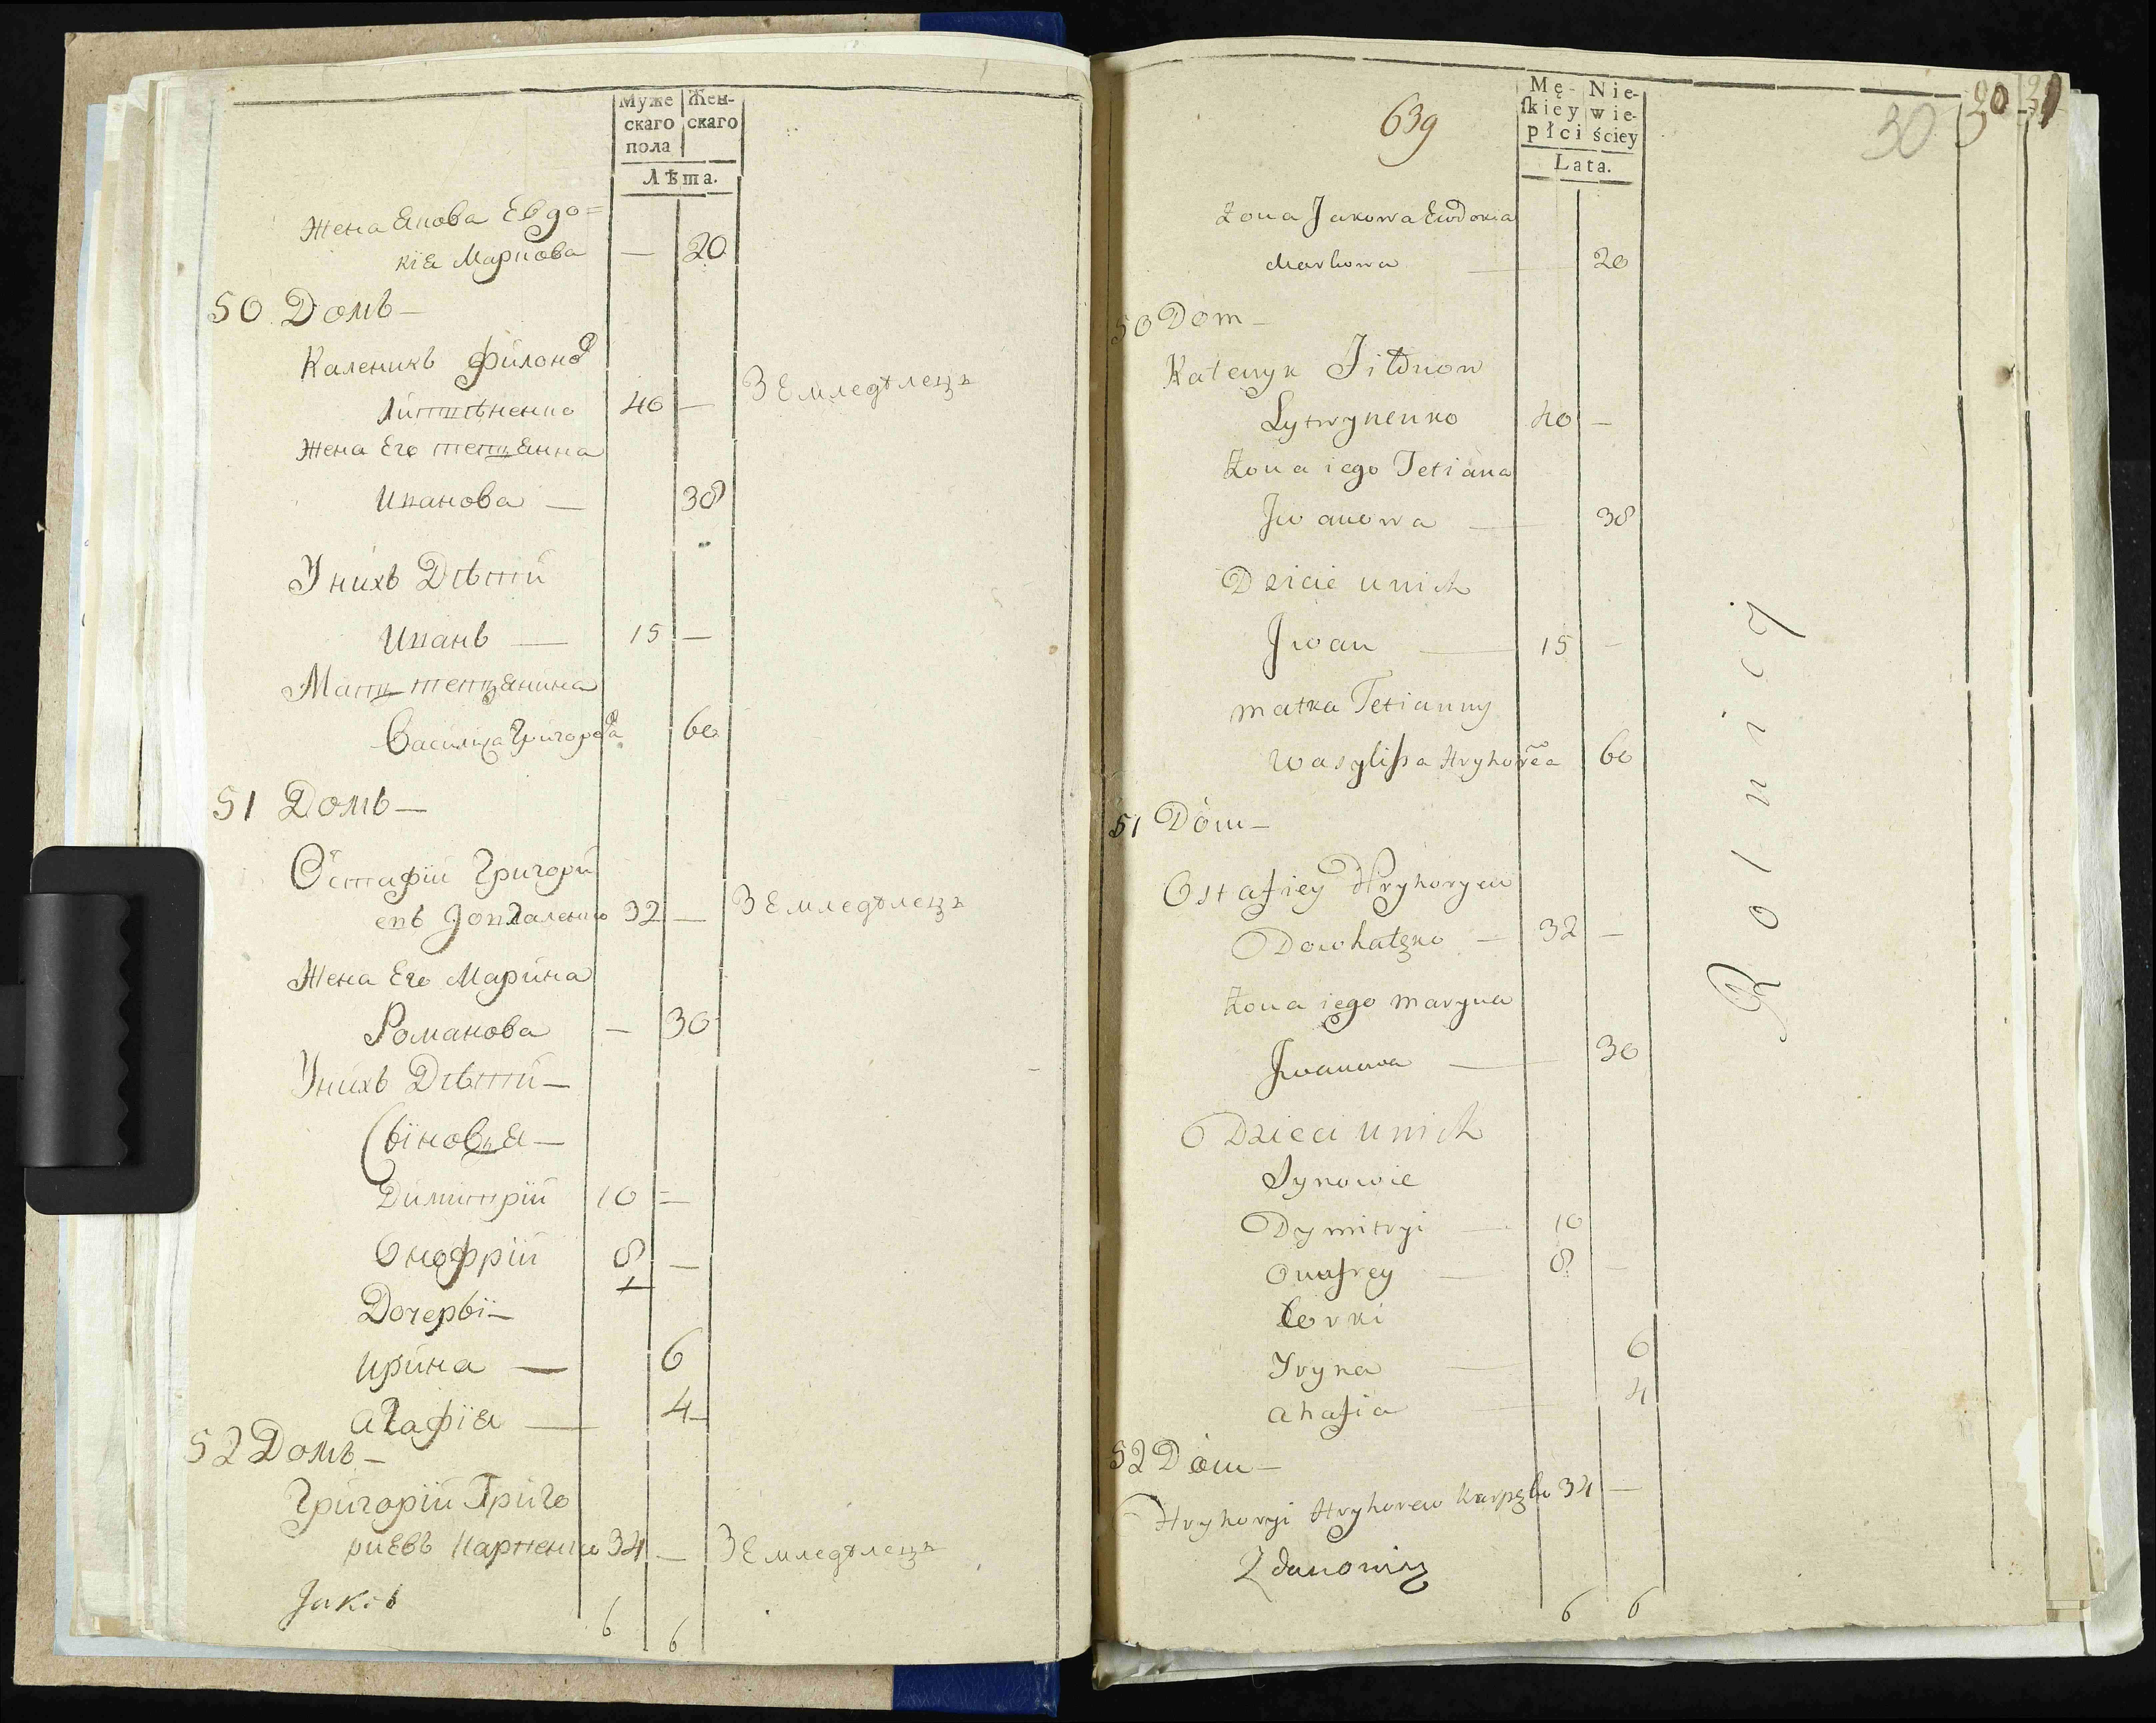 Муже Жен-
скаго скаго
пола
Лѣта.
Жена Якова Евдо=
кія Маркова — 20
50 Домъ —
Каленикъ Филоно
Литвѣненко 40 — Земледѣлецъ
Жена Его тетянна
Иванова — 38
У нихъ Дѣти
Иванъ — 15 —
Мать тетянина
Василиса Григорова 60
51 Домъ —
Остафій Григори
евъ Довгаленко 32 — Земледѣлецъ
Жена Его Марина
Романова — 30
У нихъ Дѣти —
Сыновья —
Димитрій 10 =
Онофрій 8 —
Дочеры —
Ирина — 6
Агафія — 4
52 Домъ —
Григорій Григо
риевъ Карпенко 34 — Земледѣлецъ
6 6
639
Mę- Nie-
ſkiey wie-
płci ściey
Lata.
30 30 31
Żona Jakowa Ewdokia
Markowa — 20
50 Dom —
Kalenyk Filonow
Lytwynenko 40 —
Żona iego Tetiana
Iwanowa — 38
Dzieie u nich
Iwan — 15 —
matka Tetianny
Wasylissa Hryhorẽa 60
51 Dóm —
Ostafiey Hryhoryew
Dowhalęko — 32 —
Żona iego maryna
Iwanowa — 30
Dzieci u nich
Synowie
Dymitryi — 10
Onafrey — 8 —
Corki
Iryna — 6
ahafia — 4
52 Dóm —
Hryhoryi Hryhorew Karpęko 34 —
Zdanowicz
6 6
Rolnicy